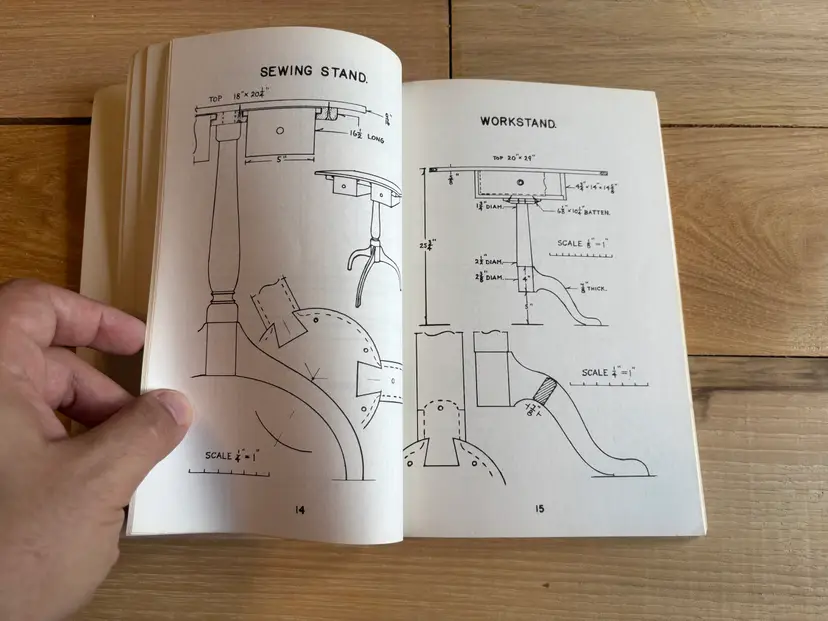 SEWING STAND.
TOP 18"×20¼"
16½ LONG
5"
SCALE ¼"=1"
14
WORKSTAND.
TOP 20"×29"
1¾" DIAM.
6½"×10¼" BATTEN.
SCALE ⅛"=1"
25¾"
2½" DIAM.
2⅜" DIAM.
4"
⅞" THICK.
5"
SCALE ¼"=1"
15